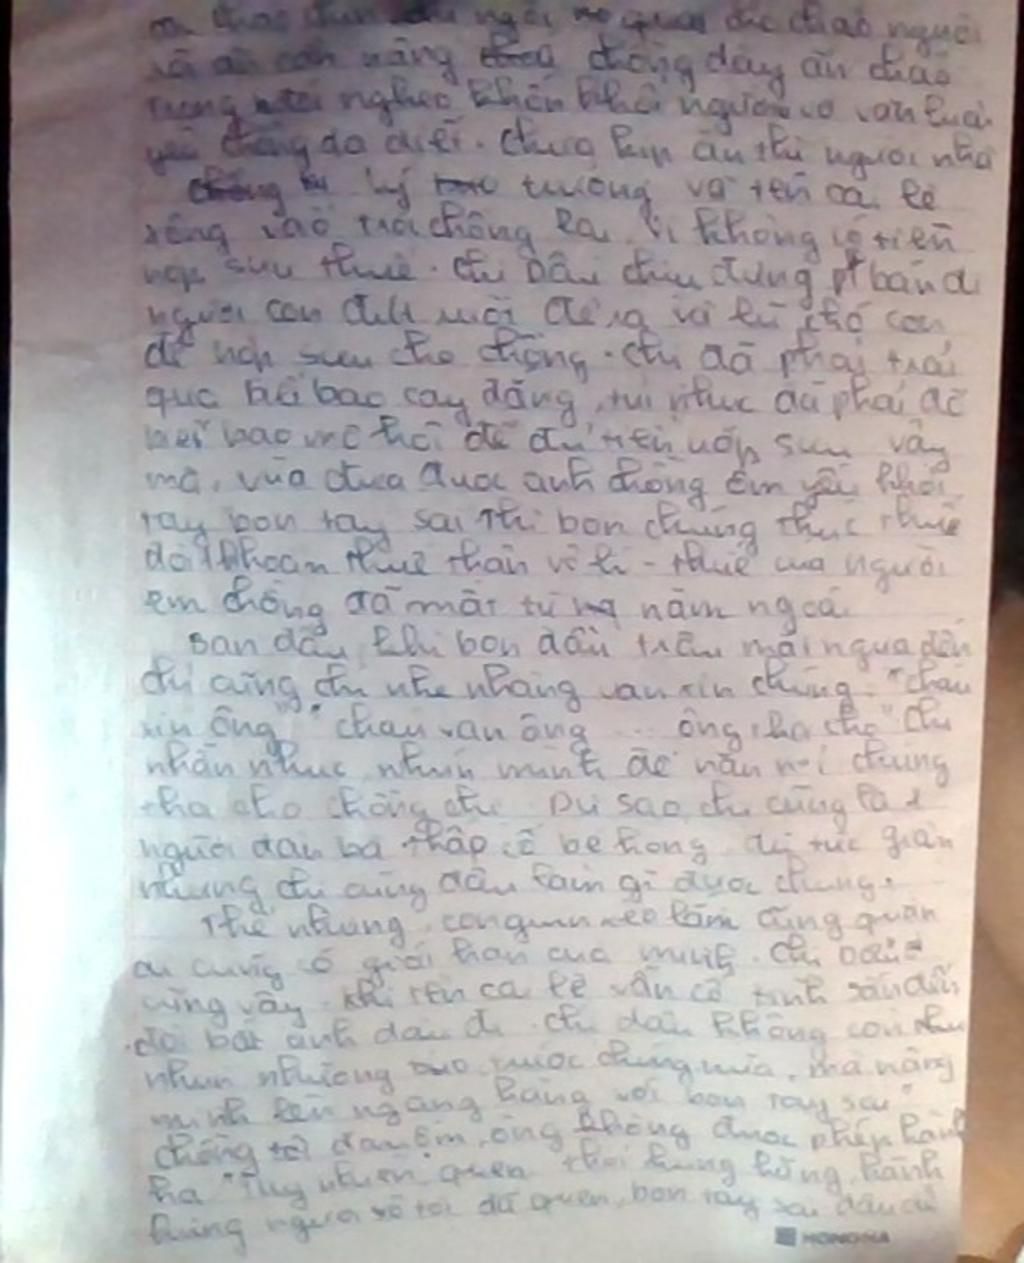 ngồi quạt cháo người
và ân cần nâng chồng dậy ăn cháo
trong nghèo khốn khó người có
yêu thương da diết. Chưa kịp ăn thì người nhà
lý trưởng và tên cai lệ
xông vào trói chồng lại vì không có tiền
nộp sưu thuế. Chị Dậu chịu đựng pt bán đi
người con đứt ruột đẻ ra và lũ chó con
để nộp sưu cho chồng. Chị đã phải trải
qua bao cay đắng, tủi nhục đã phải đổ
biết bao mồ hôi để đủ tiền nộp sưu vậy
mà, vừa đưa được anh chồng ốm yếu khỏi
tay bọn tay sai thì bọn chúng thúc thuế
đòi khoản thuế thân vô lí - thuế của người
em chồng đã mất từ năm ngoái
Ban đầu, khi bọn đầu trâu mặt ngựa đến
chị cũng chỉ nhẹ nhàng van xin chúng: "cháu
xin ông" "cháu van ông ... ông tha cho" Chị
nhẫn nhục, nhún mình để năn nỉ chúng
tha cho chồng chị. Dù sao chị cũng là 1
người đàn bà thấp cổ bé họng, dù tức giận
nhưng chị cũng đâu làm gì được chúng.
Thế nhưng, con giun xéo lắm cũng quằn
ai cũng có giới hạn của mình. Chị Dậu
cũng vậy. Khi tên cai lệ vẫn cố tình sấn đến
đòi bắt anh Dậu đi. Chị Dậu không còn
nhún nhường trước chúng nữa, mà nâng
mình lên ngang hàng với bọn tay sai "
chồng tôi đau ốm, ông không được phép hành
hạ" Tuy nhiên, quen thói hung hăng, hành
người vô tội đã quen, bọn tay sai đâu
HONG HA